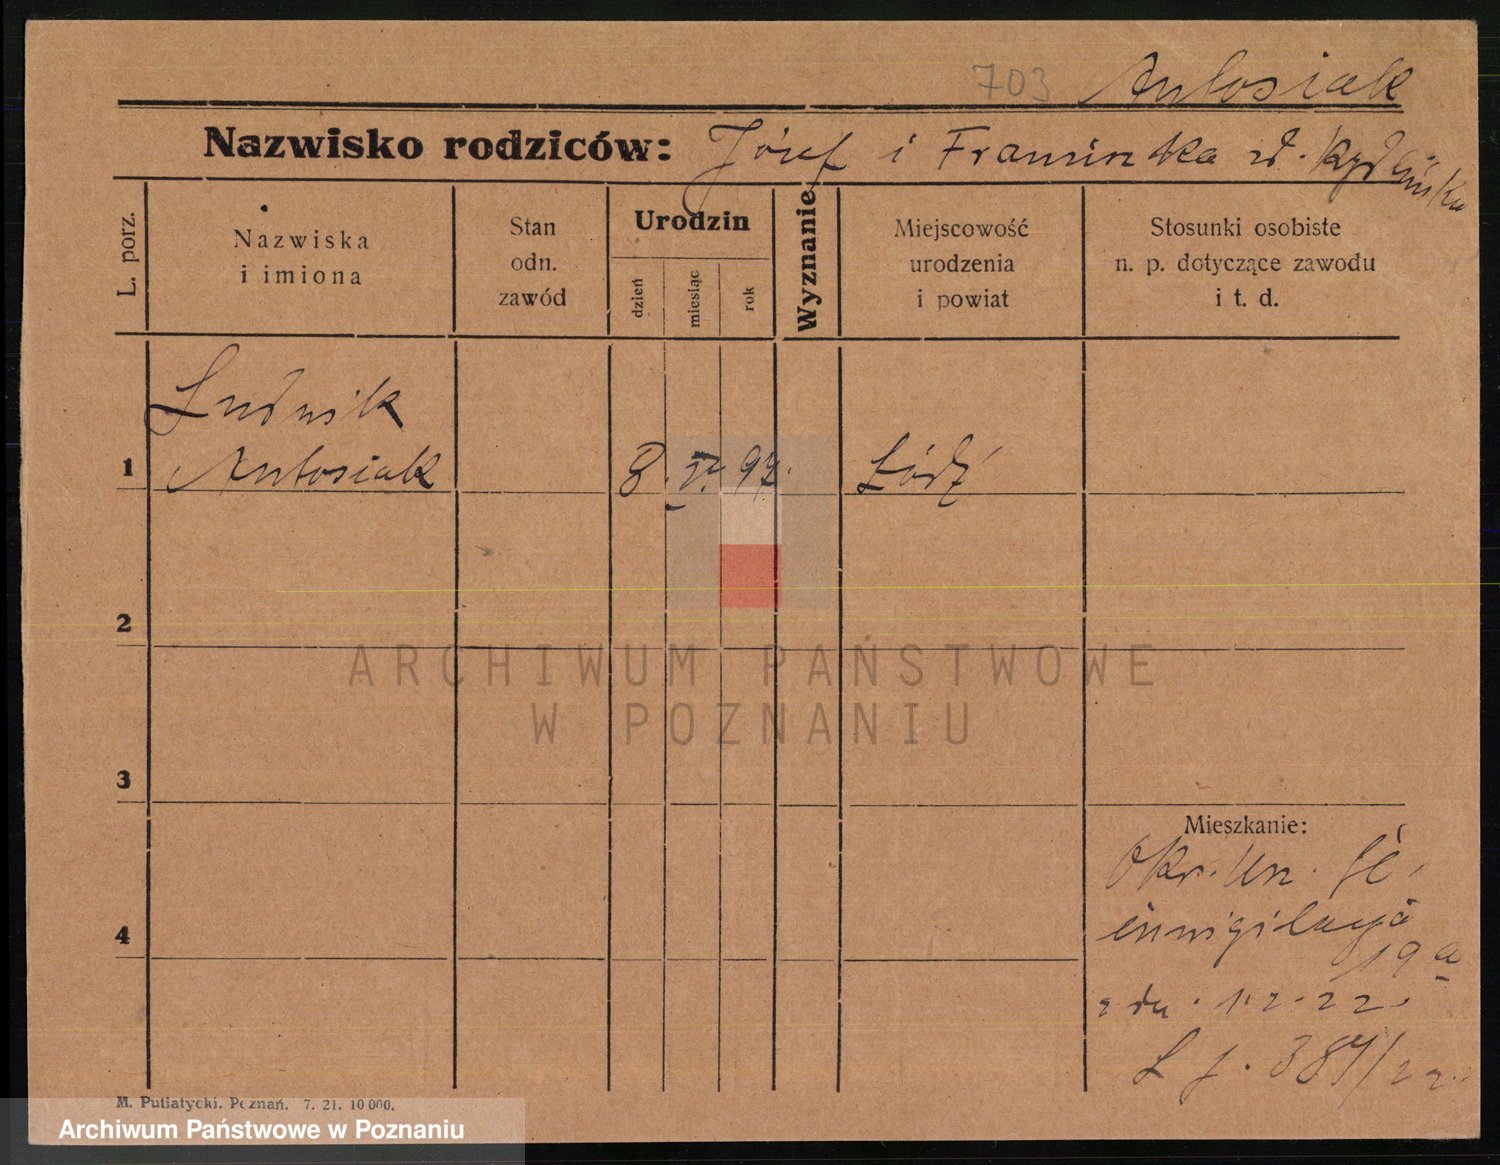 703 Antosiak
Nazwisko rodziców: Józef i Franciszka
L. porz.
Nazwiska
i imiona
Stan
odn.
zawód
Urodzin
dzień
miesiąc
rok
Wyznanie
Miejscowość
urodzenia
i powiat
Stosunki osobiste
n. p. dotyczące zawodu
i t. d.
Ludwik
1 Antosiak 8. 97. Łódź
2
3
4
Mieszkanie:
Okr.
inwigilacja
19 a
z dn. 1.2.22.
387/22
ARCHIWUM PAŃSTWOWE
W POZNANIU
M. Putiatycki. Poznań. 7. 21. 10 000.
Archiwum Państwowe w Poznaniu